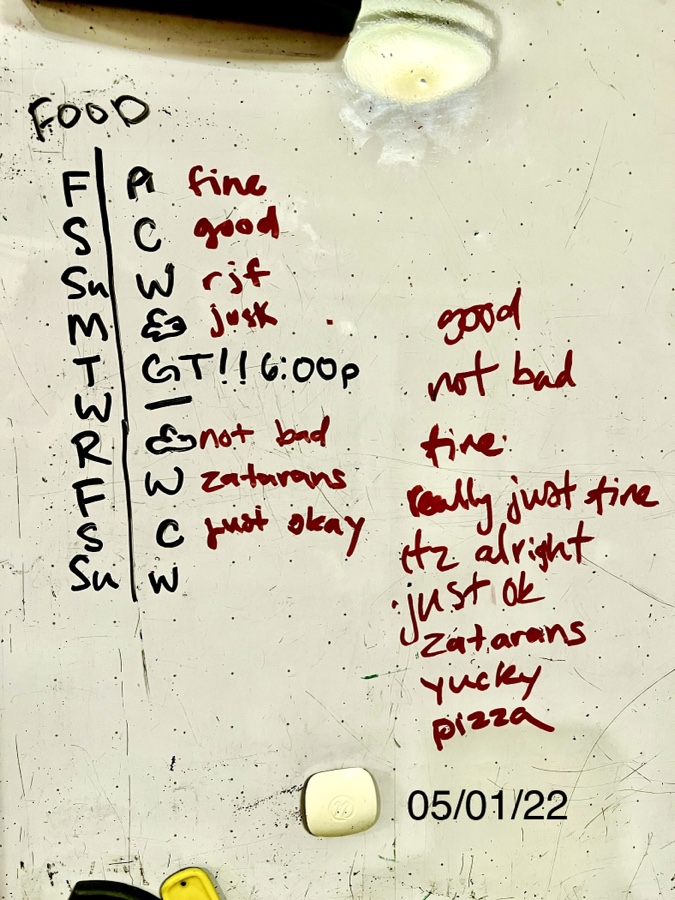 FOOD
F A fine
S C good
Su W rjf
M & just
T GT!! 6:00p
W —
R & not bad
F W zatarans
S C just okay
Su W
good
not bad
fine
really just fine
itz alright
just ok
zatarans
yucky
pizza
05/01/22